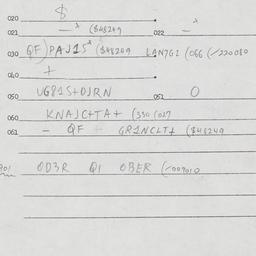 020 $
021 —* ($48249 022 —*
030 QF)PAJ15* ($48249 LAN7G1 (066 (/220080
040 +
050 UG81S+DJRN 051 O
060 KNAJC+TA+ (330 (027
061 – QF – GRINCLT+ ($48249
901 OD3R Q1 OBER (/009010